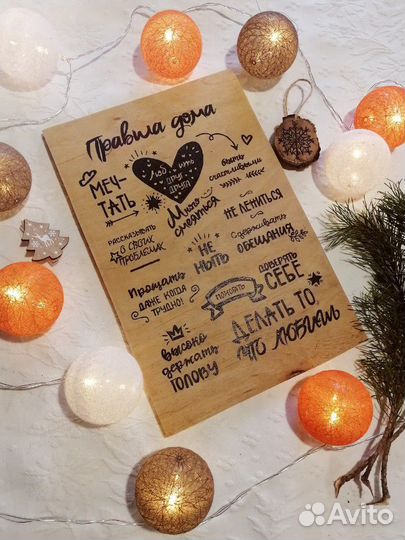 Правила дома
МЕЧ-
ТАТЬ
Любить
друг
друга
быть
счастливыми
Много
смеяться
НЕ ЛЕНИТЬСЯ
РАССКАЗЫВАТЬ
О СВОИХ
ПРОБЛЕМАХ
НЕ
НЫТЬ
Сдерживать
ОБЕЩАНИЯ
Прощать
ДАЖЕ КОГДА
ТРУДНО!
ПОМОГАТЬ
ДОВЕРЯТЬ
СЕБЕ
высоко
держать
голову
ДЕЛАТЬ ТО,
ЧТО ЛЮБИШЬ
Avito